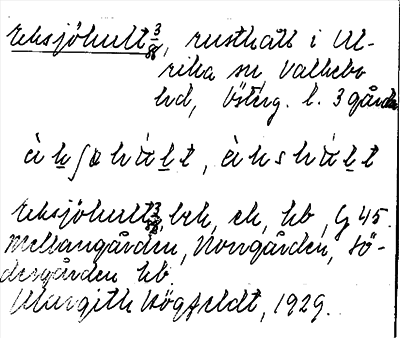 Eksjöhult 3/88, rusthåll i Ul-
rika sn, Valkebo
hd, Österg. l. 3 gårdar
Eksjöhult 3/88, bek, ek, hb, G 45.
Mellangården, Norrgården, Sö-
dergården hb
Margith Högfeldt, 1929.